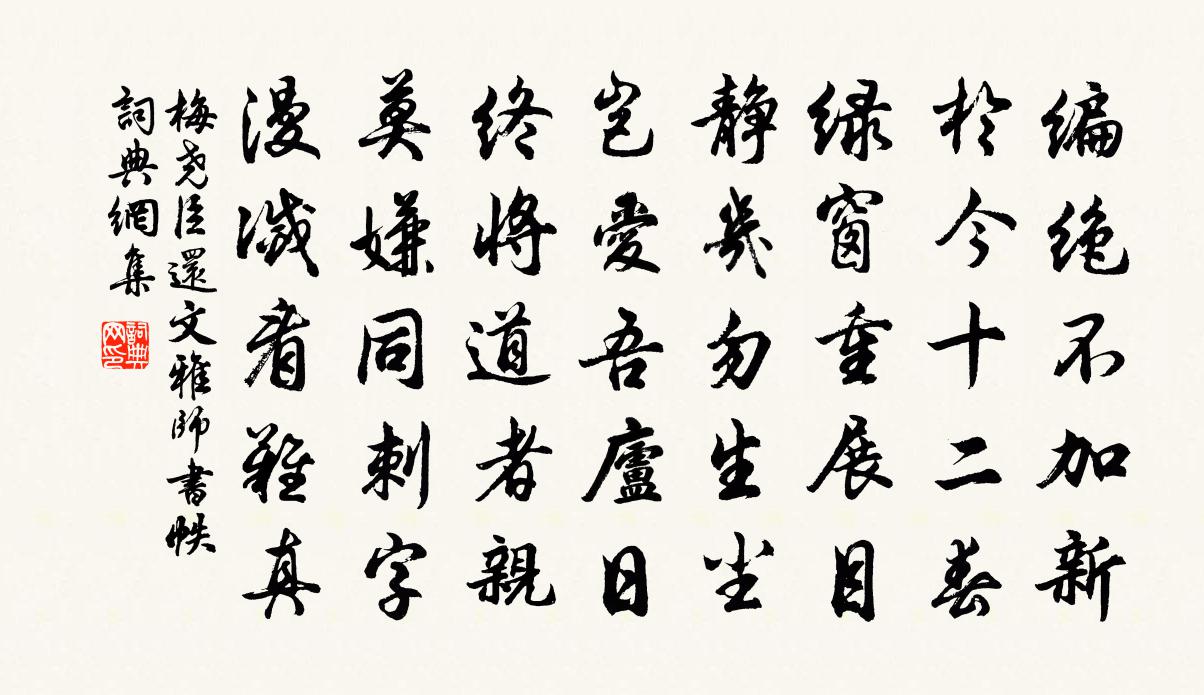 编绝不加新
於今十二春
绿窗重展目
静幾勿生尘
岂愛吾廬日
终將道者親
莫嫌同刺字
漫滅看難真
梅尧臣還文雅師書帙
詞典網集
詞典网印